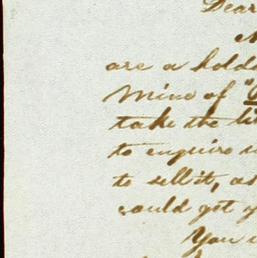 Dear
are a hold
Mine of "
take the li
to enquire
to sell it, as
could get y
You